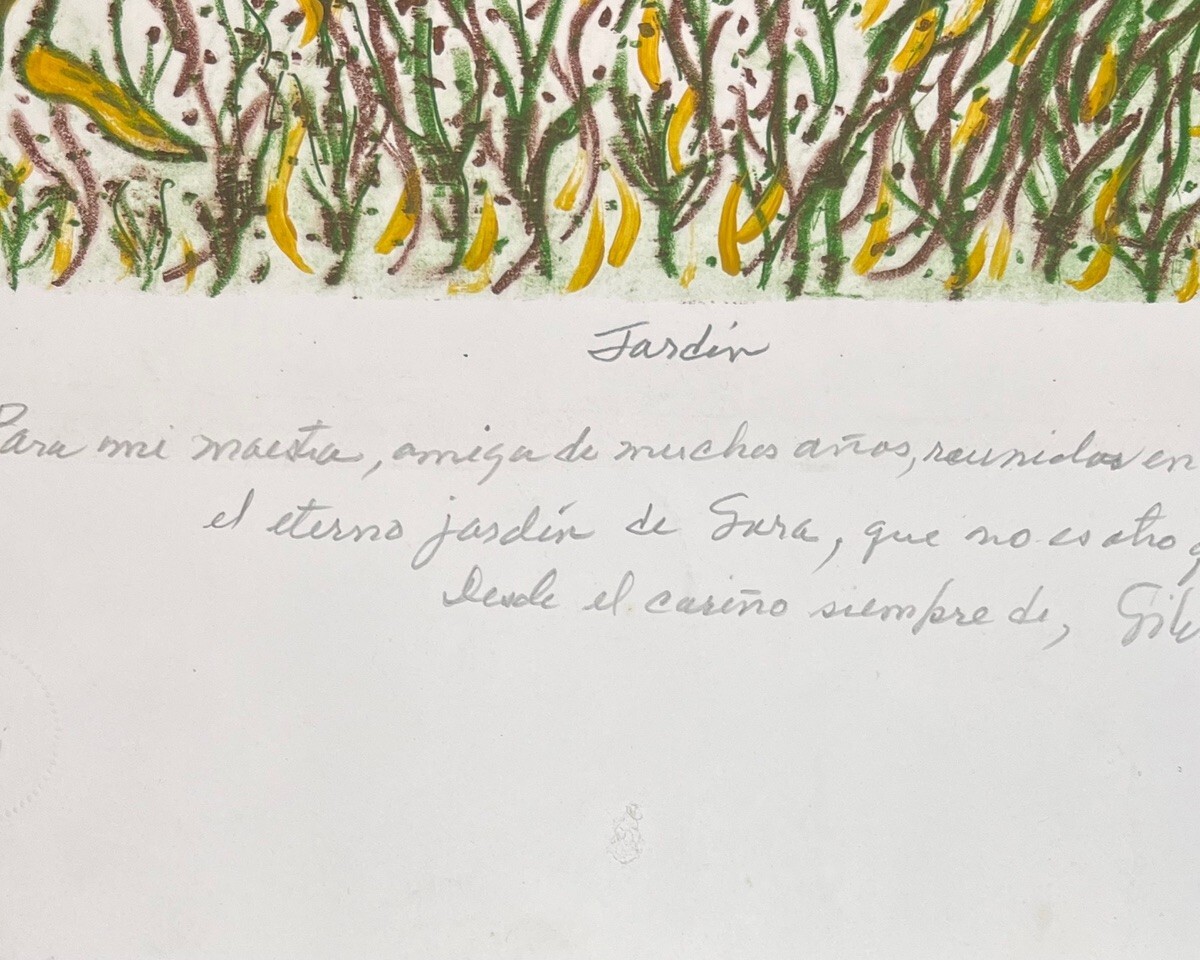 Jardín
Para mi maestra, amiga de muchos años, reunidos en
el eterno jardín de Sara, que no es otro q
Desde el cariño siempre de, Gil